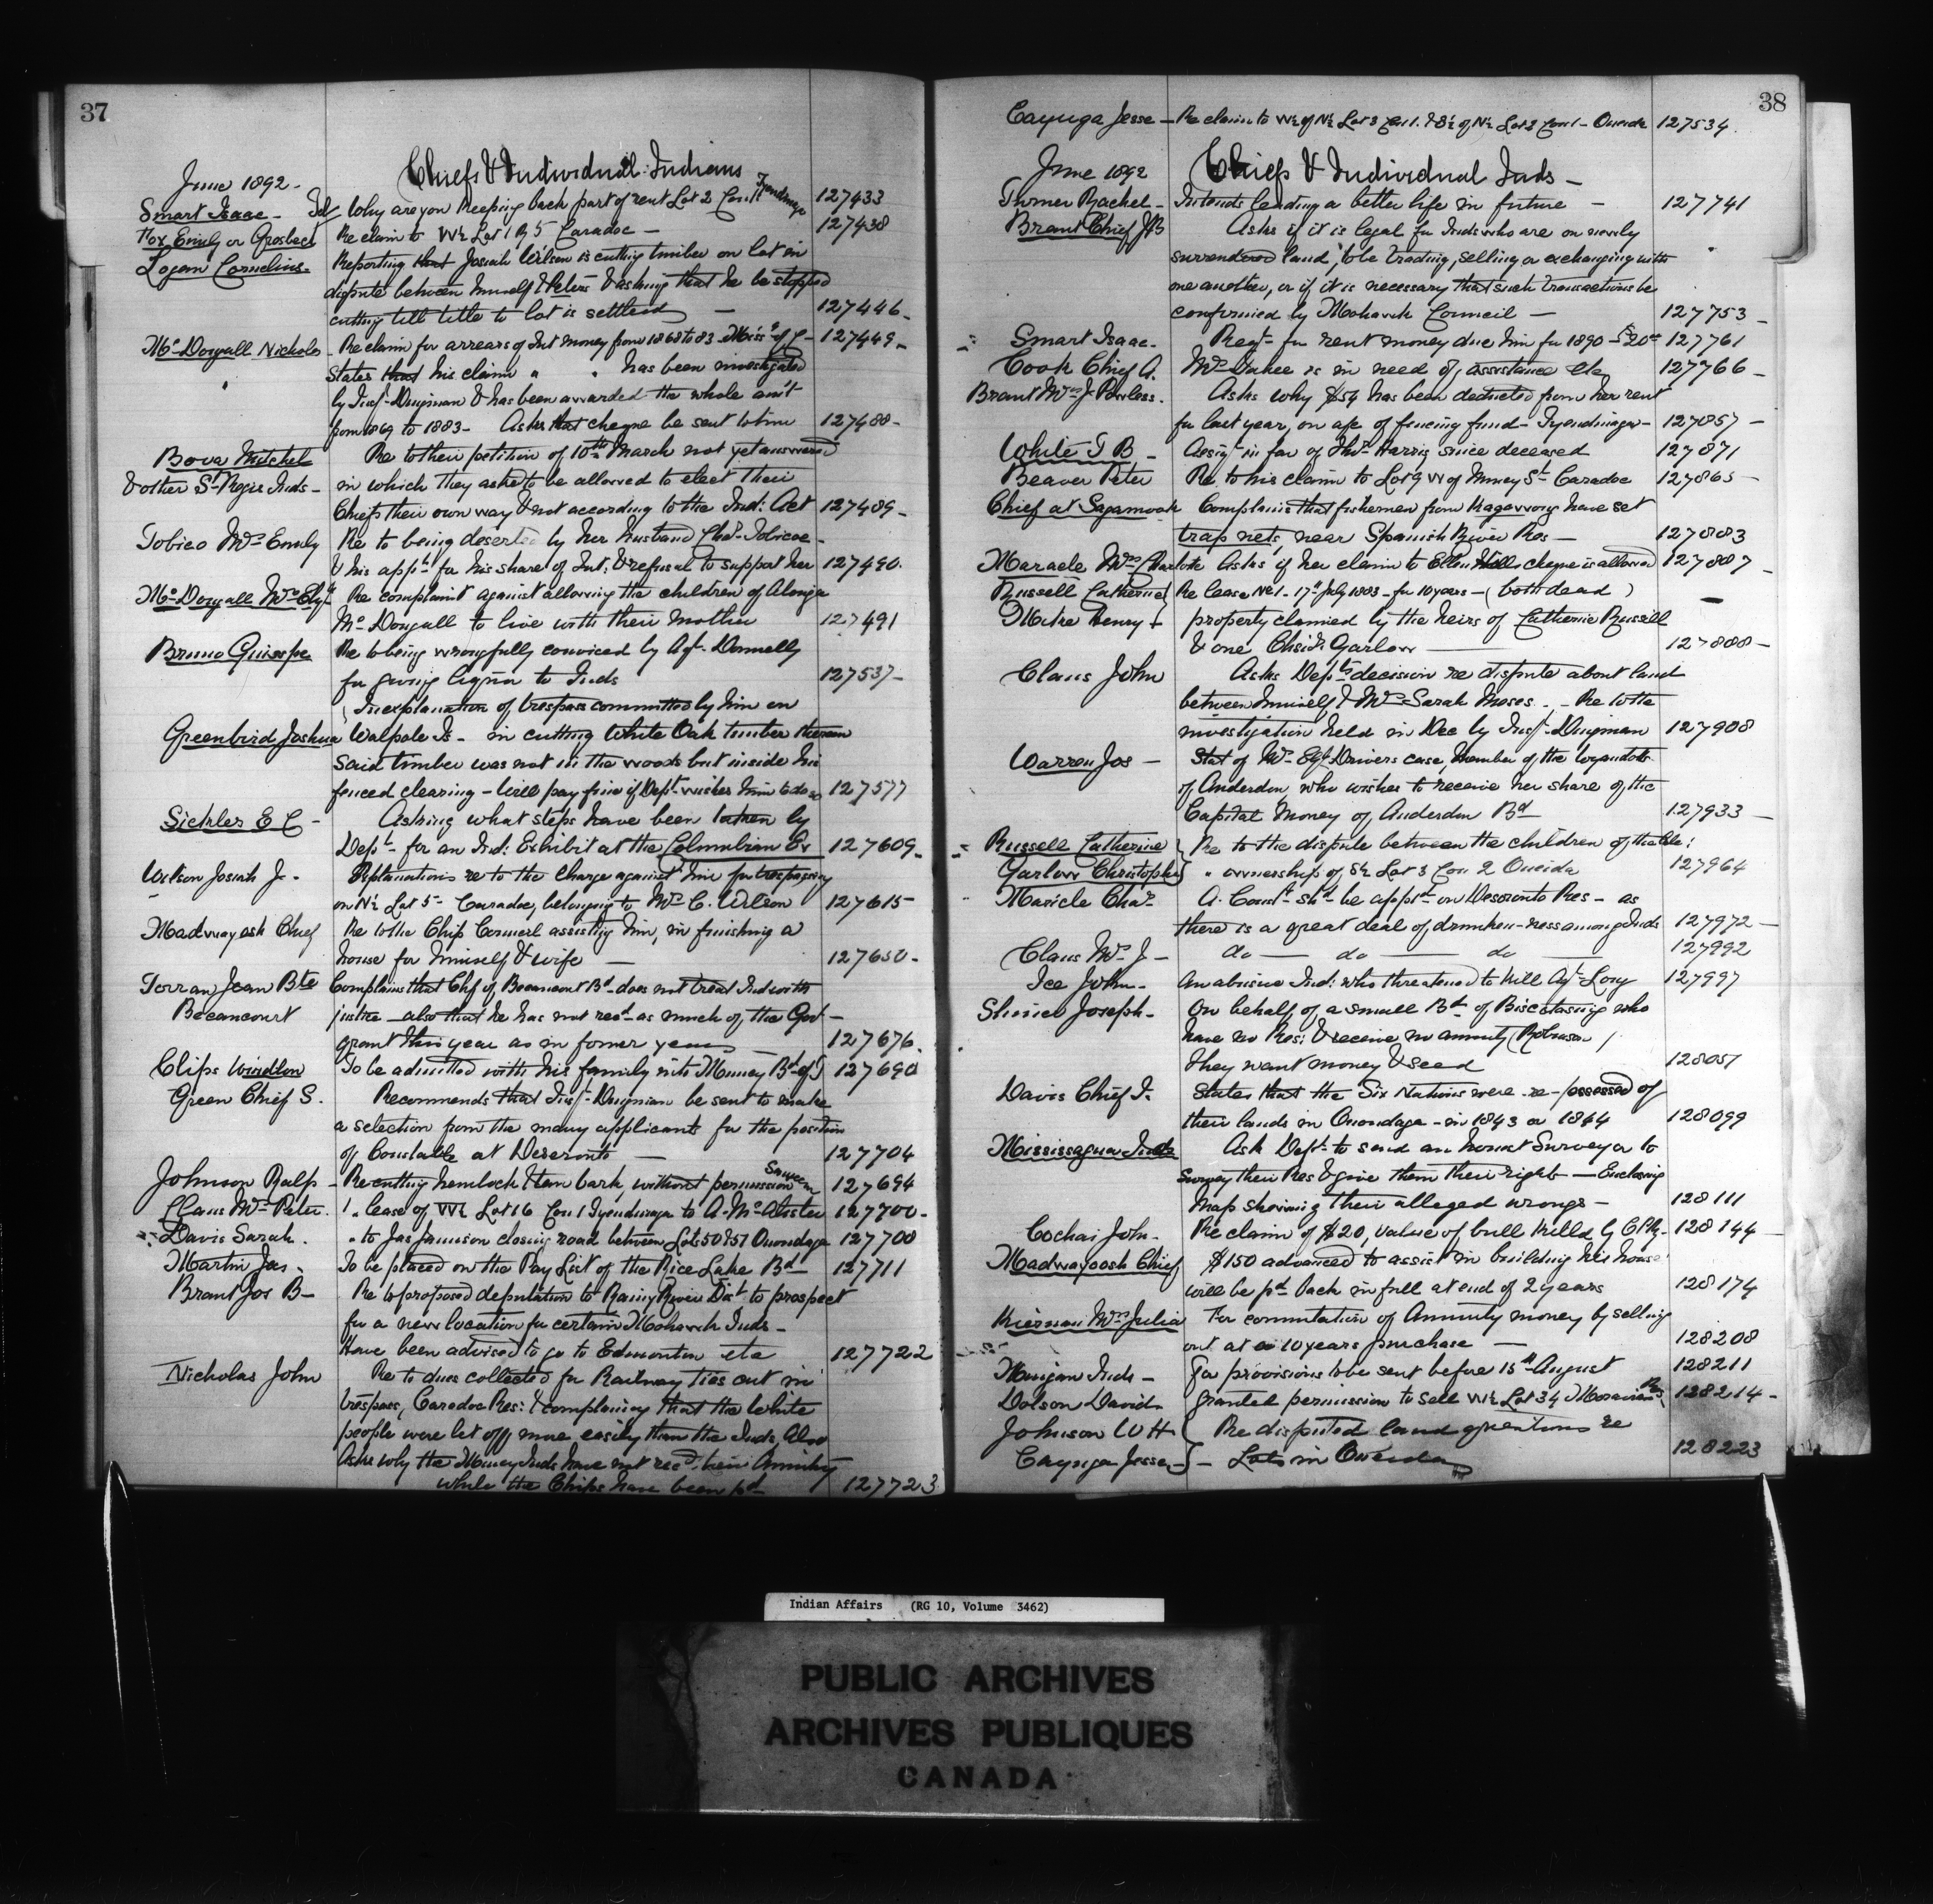 37
Chiefs & Individual Indians
June 1892 -
Smart Isaac - Why are you keeping back part of rent Lot 2 Con. Tyendinaga 127433
Fox Emily or Grosbeck Re claim to W½ Lot 1 R 5 Caradoc - 127438
Logan Cornelius - Reporting that Josiah Wilson is cutting timber on lot in
dispute between himself & Peters & asking that he be stopped
cutting till title to lot is settled - 127446 -
McDougall Nicholas - Re claim for arrears of Int money from 1868 to 83 - 127449 -
" States that his claim " " has been investigated
by Insp. Dingman & has been awarded the whole am't
from 1869 to 1883 - Asks that cheque be sent to him 127488 -
Bova Mitchel Re to their petition of 10th March not yet answered
& other St Regis Inds - in which they asked to be allowed to elect their
Chiefs their own way & not according to the Ind: Act 127489 -
Tobico Mrs Emily Re to being deserted by her husband Chas. Tobicoe -
& his appn for his share of Int: & refusal to support her 127490.
McDougall Mrs Elizth Re complaint against allowing the children of Alonza
McDougall to live with their mother 127491
Bruno Guiseppe Re to being wrongfully convicted by Agt. Donnelly
for giving liquor to Inds 127537 -
In explanation of trespass committed by him on
Greenbird Joshua Walpole Is - in cutting White Oak timber thereon
Said timber was not in the woods but inside his
fenced clearing - Will pay fine if Dept. wishes him to do so 127577
Sickles E C - Asking what steps have been taken by
Dept. for an Ind: Exhibit at the Columbian Ex 127609 -
Wilson Josiah J. Explanations re to the charge against him for trespassing
on N½ Lot 5 - Caradoc, belonging to Mrs C. Wilson 127615 -
Madwayosh Chief Re to the Chip Council assisting him, in finishing a
house for himself & wife - 127650 -
Terran Jean Bte Complains that Chf of Becancour Bd - does not treat Inds with
Becancourt justice - also that he has not recd as much of the Govt -
grant this year as in former years - 127676.
Clips Windlon To be admitted with his family into Muncey Bd of T 127690
Green Chief S. Recommends that Insp. Dingman be sent to make
a selection from the many applicants for the position
of Constable at Deseronto - 127704
Johnson Ralp - Re cutting hemlock & tan bark, without permission Saugeen 127694
Claus Mrs Peter. " lease of W½ Lot 16 Con 1 Tyendinaga to A. McAlister 127700 -
Davis Sarah. " to Jas Jamison closing road between Lots 50 & 51 Onondaga 127708
Martin Jas. To be placed on the Pay List of the Rice Lake Bd - 127711
Brant Jos B - Re to proposed deputation to Rainy River Dist to prospect
for a new location for certain Mohawk Inds -
Have been advised to go to Edmonton etc 127722
Nicholas John Re to dues collected for Railway ties cut in
trespass, Caradoc Res: & complaining that the White
people were let off more easily than the Inds. Also
Asks why the Muncey Inds have not recd their Annuity
while the Chips have been pd 127723
38
Cayuga Jesse - Re claim to W½ of N½ Lot 3 Con 1. & S½ of N½ Lot 2 Con 1 - Oneida 127534.
June 1892 Chiefs & Individual Inds -
Turner Rachel - Intends leading a better life in future - 127741
Brant Chief JB Asks if it is legal for Inds who are on newly
surrendered land, to be trading, selling or exchanging with
one another, or if it is necessary that such transactions be
confirmed by Mohawk Council - 127753 -
Smart Isaac - Reqt. for rent money due him for 1890 - $20 127761
Cook Chief A. is in need of assistance etc 127766 -
Brant Mrs J. Powless. Asks why $54 has been deducted from her rent
for last year, on a/c of fencing fund - Tyendinaga - 127857 -
White T B - Assigt in fav of Thos. Harris since deceased 127871
Beaver Peter Re to his claim to Lot 9 W of Muncey St Caradoc 127865 -
Chief at Sagamook Complains that fishermen from Kagawong have set
trap nets, near Spanish River Res - 127883
Maracle Mrs Charlotte Asks if her claim to Ellen Hill's cheque is allowed 127887 -
Russell Catherine Re lease No 1 - 17th July 1883 - for 10 years - (both dead) -
Mitre Henry property claimed by the heirs of Catherine Russell
& one Chisr. Garlow 127888 -
Claus John Asks Dept's decision re dispute about land
between himself & Mrs Sarah Moses - Re to the
investigation held in Dec by Insp. Dingman 127908
Warren Jos - Stat of Mrs Drivers case, Member of the Wyandotts
of Anderdon, who wishes to receive her share of the
Capital Money of Anderdon Bd 127933 -
Russell Catherine Re to the dispute between the children of the above:
Garlow Christopher " ownership of S½ Lot 3 Con 2 Oneida 127964
Maricle Chas. A. Const. shd. be appt. on Deseronto Res - as
there is a great deal of drunken-ness among Inds 127972 -
Claus Mrs J - do - do - do 127992
Ice John - An abusive Ind: who threatened to kill Agt. Long 127997
Shinier Joseph - On behalf of a small Bd of Biscotasing who
have no Res: & receive no annuity (Robinson)
they want money & seed 128051
Davis Chief J. States that the Six Nations were re-possessed of
their lands in Onondaga - in 1843 or 1844 128099
Mississagua Inds Ask Dept. to send an honest Surveyor to
survey their Res & give them their right - Enclosing
Map showing their alleged wrongs - 128111
Cochai John - Re claim of $20, value of bull killed by C P Ry - 128144 -
Madwayoosh Chief $150 advanced to assist in building his house
will be pd. back in full at end of 2 years 128174
Kiernan Mrs Julia For commutation of Annuity money by selling
out at a 10 years purchase - 128208
Mingan Inds - For provisions to be sent before 15th August 128211
Dolson David - Granted permission to sell W½ Lot 34 Moravian Res 128214 -
Johnson W H Re disputed land questions re
Cayuga Jesse - Lots in Oneida 128223
Indian Affairs (RG 10, Volume 3462)
PUBLIC ARCHIVES
ARCHIVES PUBLIQUES
CANADA